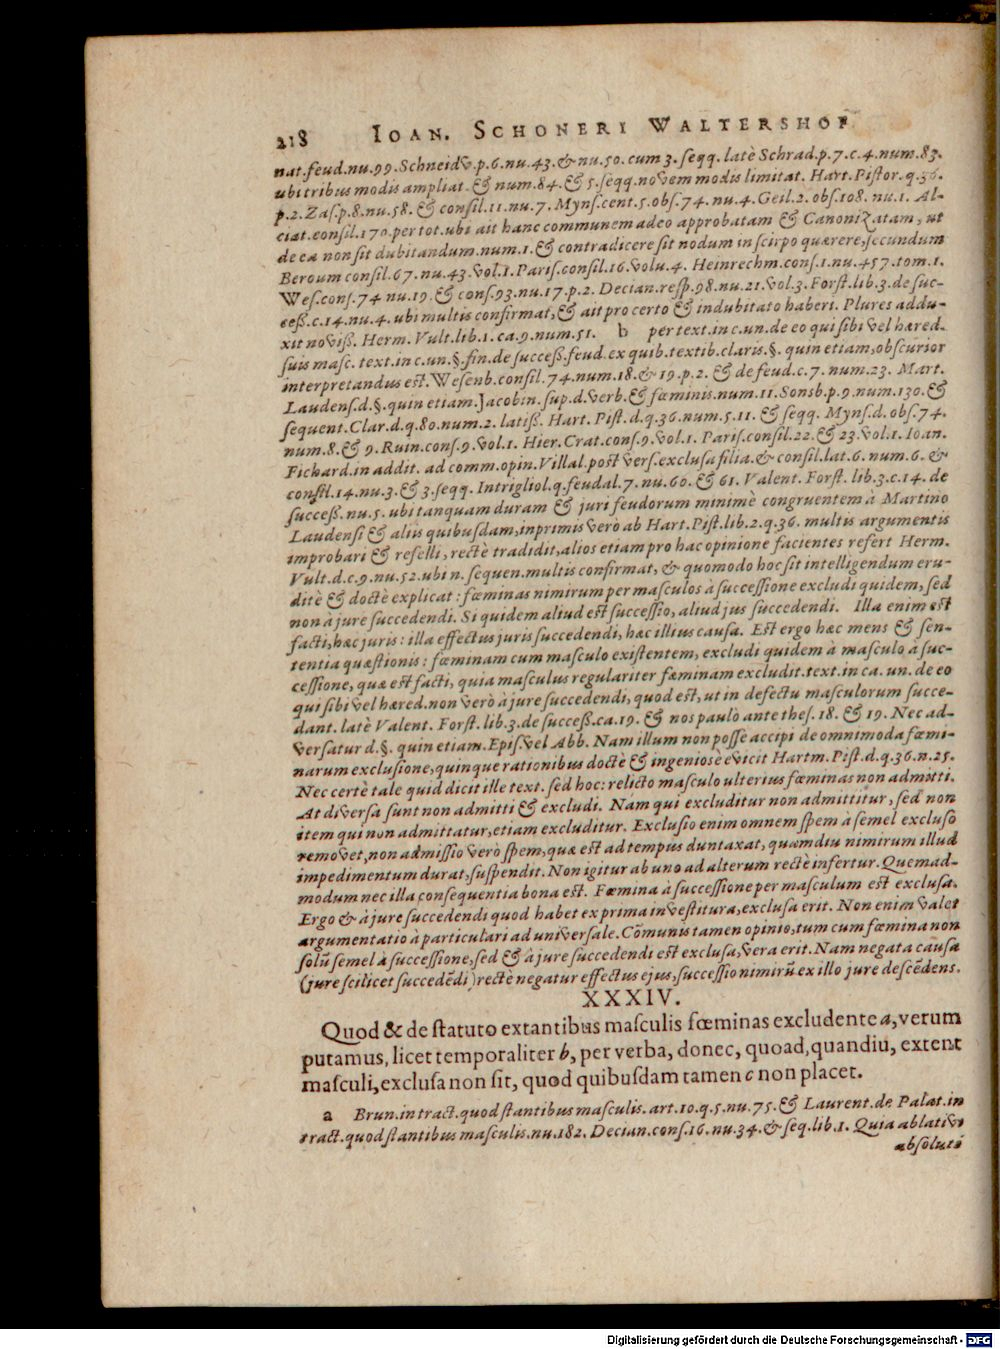 218 IOAN. SCHONERI WALTERSHOF.
nat.feud.nu.99.Schneidv.p.6.nu.43.& nu.50.cum 3.seqq.latè Schrad.p.7.c.4.num.83.
ubi tribus modis ampliat.& num.84.& 5.seqq.novem modis limitat. Hart.Pistor.q.36.
p.2.Zas.p.8.nu.58. & consil.11.nu.7. Myns.cent.5.obs.74.nu.4.Geil.2.obs.108.nu.1. Al-
ciat.consil.170.per tot.ubi ait hanc communem adeo approbatam & Canonizatam, ut
de ea non sit dubitandum.num.1.& contradicere sit nodum in scirpo quærere, secundum
Beroum consil.67.nu.43.vol.1.Paris.consil.16.volu.4. Heinrechm.cons.1.nu.457.tom.1.
Wes.cons.74 nu.19.& cons.93.nu.17.p.2. Decian.resp.98.nu.21.vol.3.Forst.lib.3.de suc-
cess.c.14.nu.4.ubi multis confirmat,& ait pro certo & indubitato haberi. Plures addu-
xit noviss. Herm. Vult.lib.1.ca.9.num.51. b per text.in c.un.de eo qui sibi vel hæred.
suis masc.text.in c.un.§.fin.de success.feud.ex quib.textib.claris.§. quin etiam,obscurior
interpretandus est.Wesenb.consil.74.num.18.& 19.p.2. & de feud.c.7. num.23. Mart.
Laudens.d.§.quin etiam.Jacobin.sup.d.verb.& fœminis.num.11.Sonsb.p.9.num.130.&
sequent.Clar.d.q.80.num.2.latiss. Hart. Pist.d.q.36.num.5.11. & seqq. Myns.d. obs.74.
num.8.& 9.Ruin.cons.9.vol.1. Hier.Crat.cons.9.vol.1. Paris.consil.22.& 23.vol.1. Ioan.
Fichard.in addit. ad comm.opin.Villal.post vers.exclusa filia.& consil.lat.6.num.6. &
consil.14.nu.3.& 3.seqq. Intrigliol.q.feudal.7.nu.60.& 61.Valent. Forst. lib.3.c.14. de
success.nu.5.ubi tanquam duram & juri feudorum minimè congruentem à Martino
Laudensi & aliis quibusdam,inprimis verò ab Hart.Pist.lib.2.q.36. multis argumentis
improbari & refelli,rectè tradidit,alios etiam pro hac opinione facientes refert Herm.
Vult.d.c.9.nu.52.ubi n.sequen.multis confirmat, & quomodo hoc sit intelligendum eru-
ditè & doctè explicat: fœminas nimirum per masculos à successione excludi quidem, sed
non à jure succedendi. Si quidem aliud est successio,aliud jus succedendi. Illa enim est
facti,hæc juris: illa effectus juris succedendi,hæc illius causa. Est ergo hæc mens & sen-
tentia quæstionis: fœminam cum masculo existentem, excludi quidem à masculo à suc-
cessione, quæ est facti, quia masculus regulariter fœminam excludit.text.in ca. un. de eo
qui sibi vel hæred.non verò à jure succedendi, quod est, ut in defectu masculorum succe-
dant. latè Valent. Forst.lib.3.de success.ca.19. & nos paulò ante thes. 18. & 19. Nec ad-
versatur d.§. quin etiam.Epis.vel Abb. Nam illum non posse accipi de omnimoda fœmi-
narum exclusione,quinque rationibus doctè & ingeniosè evicit Hartm. Pist.d.q.36.n.25.
Nec certè tale quid dicit ille text. sed hoc: relicto masculo ulterius fœminas non admitti.
At diversa sunt non admitti & excludi. Nam qui excluditur non admittitur, sed non
item qui non admittatur,etiam excluditur. Exclusio enim omnem spem à semel excluso
removet,non admissio verò spem,quæ est ad tempus duntaxat, quamdiu nimirum illud
impedimentum durat,suspendit. Non igitur ab uno ad alterum rectè infertur. Quemad-
modum nec illa consequentia bona est. Fœmina à successione per masculum est exclusa.
Ergo & à jure succedendi quod habet ex prima investitura,exclusa erit. Non enim valet
argumentatio à particulari ad universale. Cõmunis tamen opinio,tum cum fœmina non
solũ semel à successione,sed & à jure succedendi est exclusa,vera erit. Nam negata causa
(jure scilicet succedẽdi) rectè negatur effectus ejus,successio nimirũ ex illo jure descẽdens.
XXXIV.
Quod & de statuto extantibus masculis fœminas excludente a, verum
putamus, licet temporaliter b, per verba, donec, quoad, quandiu, extent
masculi, exclusa non sit, quod quibusdam tamen c non placet.
a Brun.in tract.quod stantibus masculis.art.10.q.5.nu.75.& Laurent.de Palat.in
tract.quod stantibus masculis.nu.182. Decian.cons.16.nu.34.& seq.lib.1. Quia ablativi
absoluti
Digitalisierung gefördert durch die Deutsche Forschungsgemeinschaft - DFG